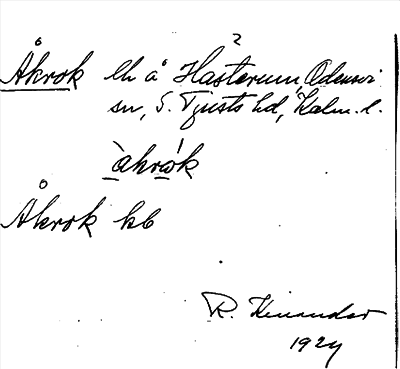 ?
Åkrok lh å Hasterum, Odensvi
sn, S. Tjusts hd, Kalm. l.
àkrók
Åkrok kb
R. Kinander
1924